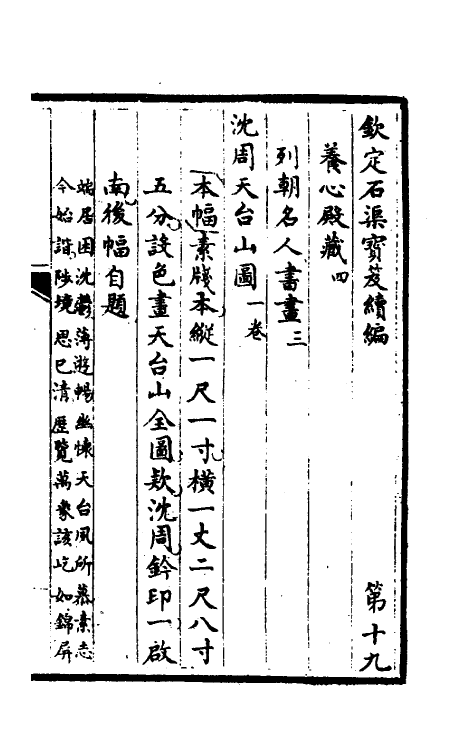 欽定石渠寶笈續編 第十九
養心殿藏四
列朝名人書畫三
沈周天台山圖一卷
本幅素牋本縱一尺一寸橫一丈二尺八寸
五分設色畫天台山全圖欵沈周鈐印一啟
南後幅自題
端居困沈鬱薄遊暢幽悚天台夙所慕素志
今始諧陟境思已清歷覽萬象該屹如錦屏